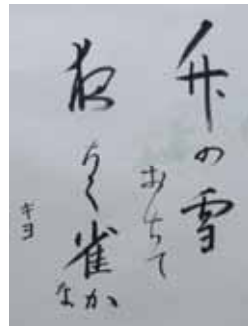 竹の雪
おちて
夜なく雀か
な
キヨ